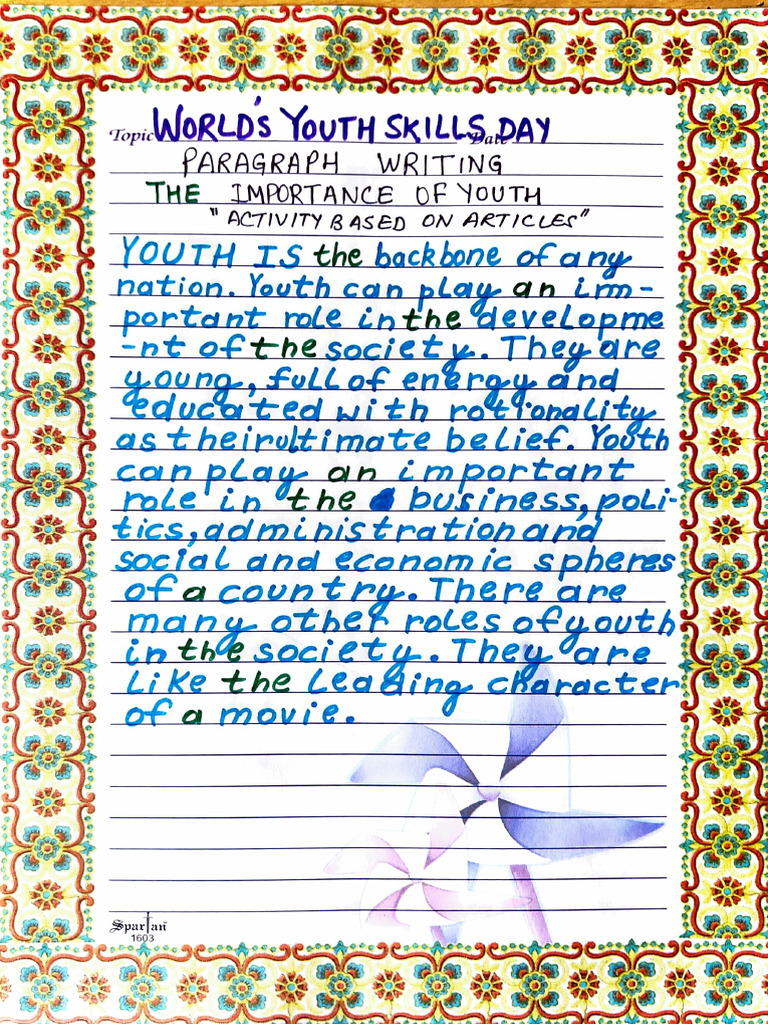 Topic WORLD'S YOUTH SKILLS DAY Date
PARAGRAPH WRITING
THE IMPORTANCE OF YOUTH
"ACTIVITY BASED ON ARTICLES"
YOUTH IS the backbone of any
nation. Youth can play an im-
portant role in the developme
-nt of the society. They are
young, full of energy and
educated with rationality
as their ultimate belief. Youth
can play an important
role in the business, poli-
tics, administration and
social and economic spheres
of a country. There are
many other roles of youth
in the society. They are
like the leading character
of a movie.
Spartan
1603